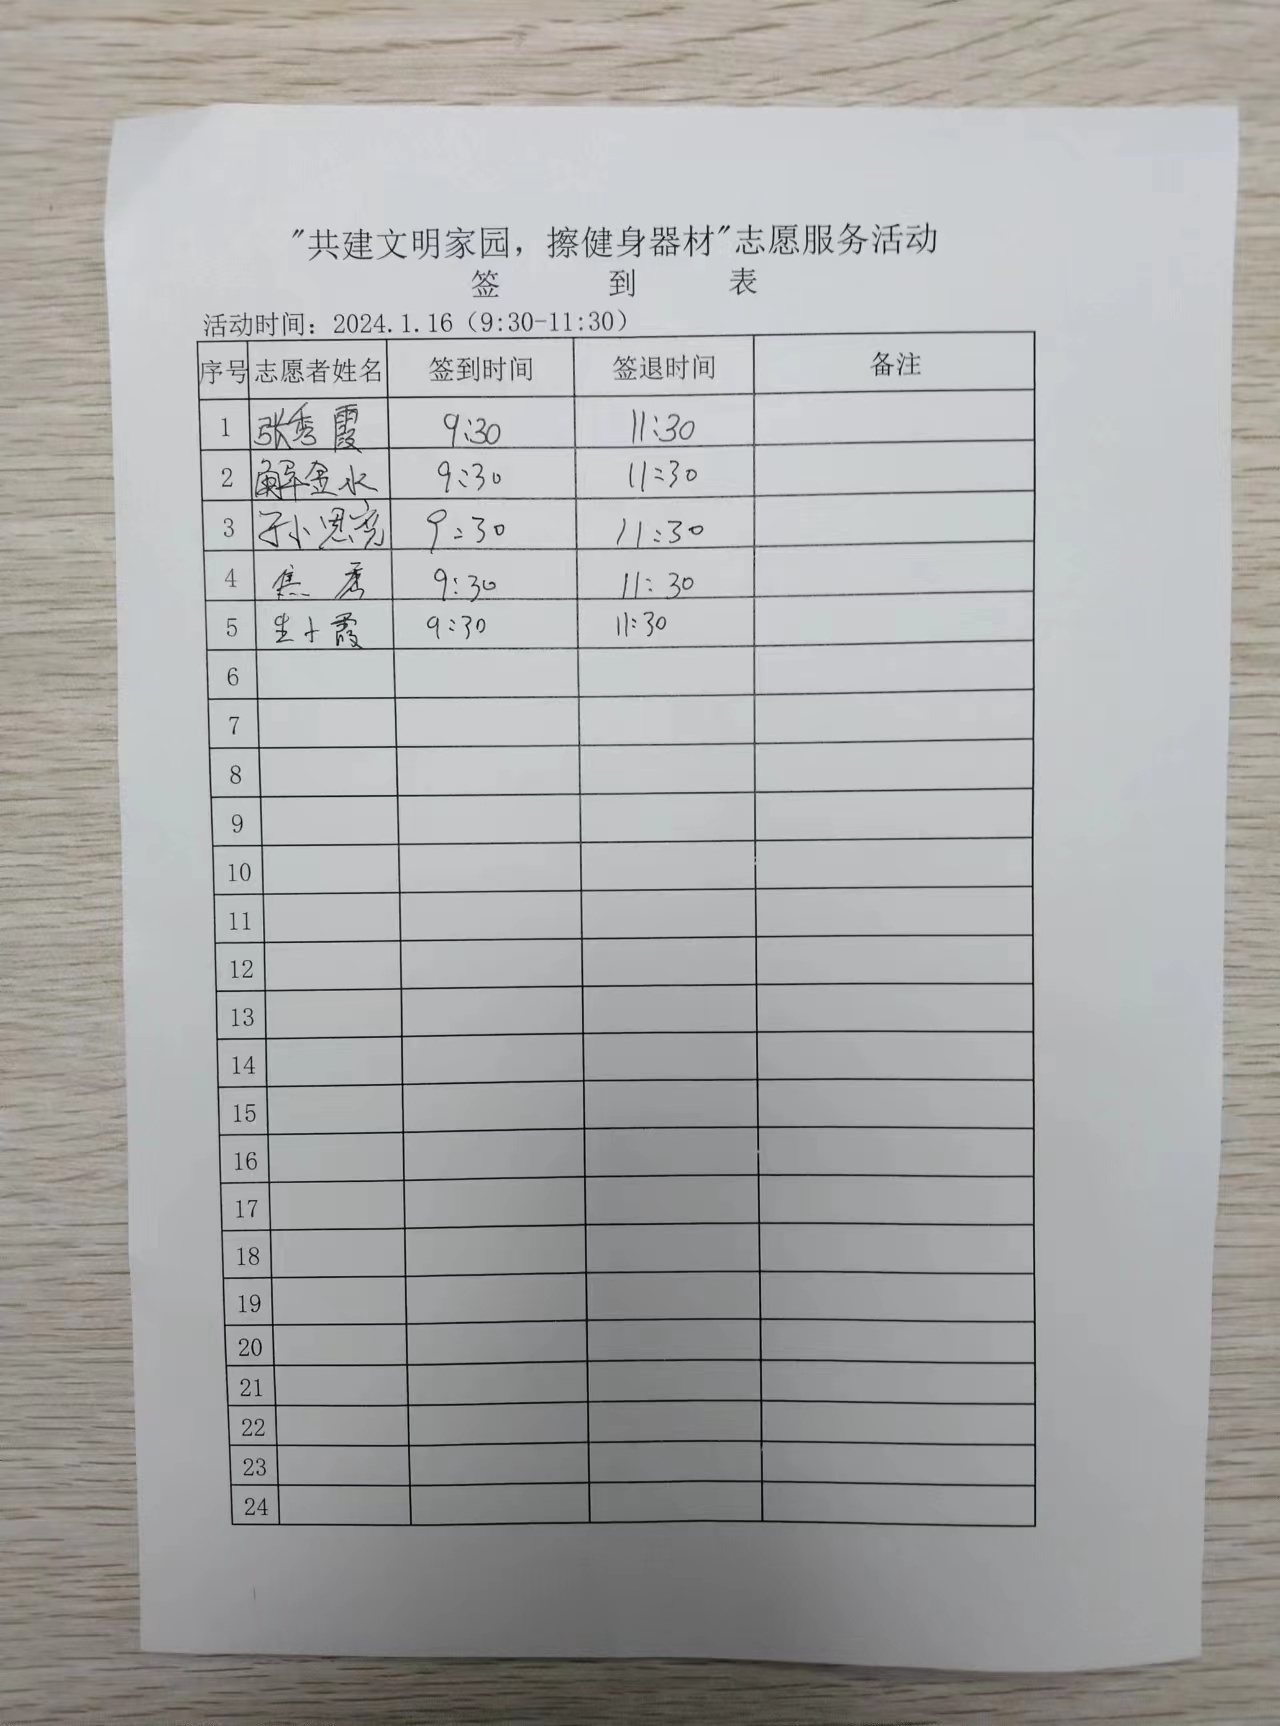 "共建文明家园，擦健身器材"志愿服务活动
签 到 表
活动时间：2024.1.16（9:30-11:30）
序号 志愿者姓名 签到时间 签退时间 备注
1 张秀霞 9:30 11:30
2 解金水 9:30 11:30
3 9:30 11:30
4 焦 9:30 11:30
5 生小霞 9:30 11:30
6
7
8
9
10
11
12
13
14
15
16
17
18
19
20
21
22
23
24